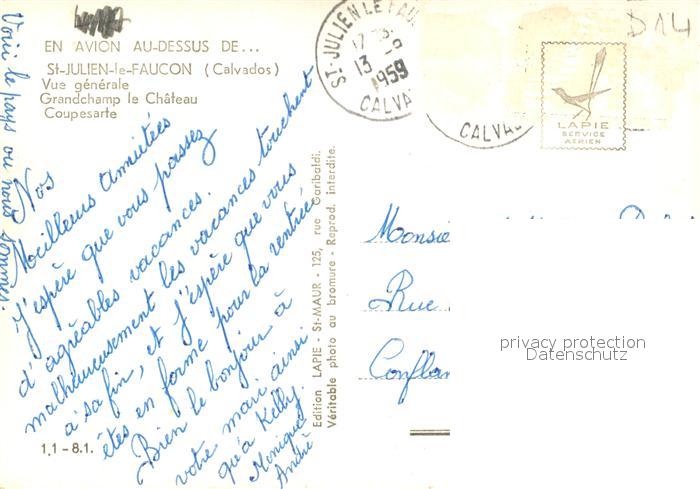 EN AVION AU-DESSUS DE...
St-JULIEN-le-FAUCON (Calvados)
Vue générale
Grandchamp le Château
Coupesarte
Voici le pays ou nous sommes.
Nos
Meilleurs Amitiées
J'espère que vous passez
d'agréables vacances.
malheureusement les vacances touchent
à sa fin, et j'espère que vous
êtes en forme pour la rentrée
Bien le bonjour à
votre mari ainsi
qu'à Kelly.
Monique
André
11-8.1.
Edition LAPIE - St-MAUR - 125, rue Garibaldi.
Véritable photo au bromure - Reprod. interdite.
ST-JULIEN LE FAU
13
1959
CALVA
CALVAD
D14
LAPIE
SERVICE
AERIEN
Monsie
Rue
Conflan
privacy protection
Datenschutz